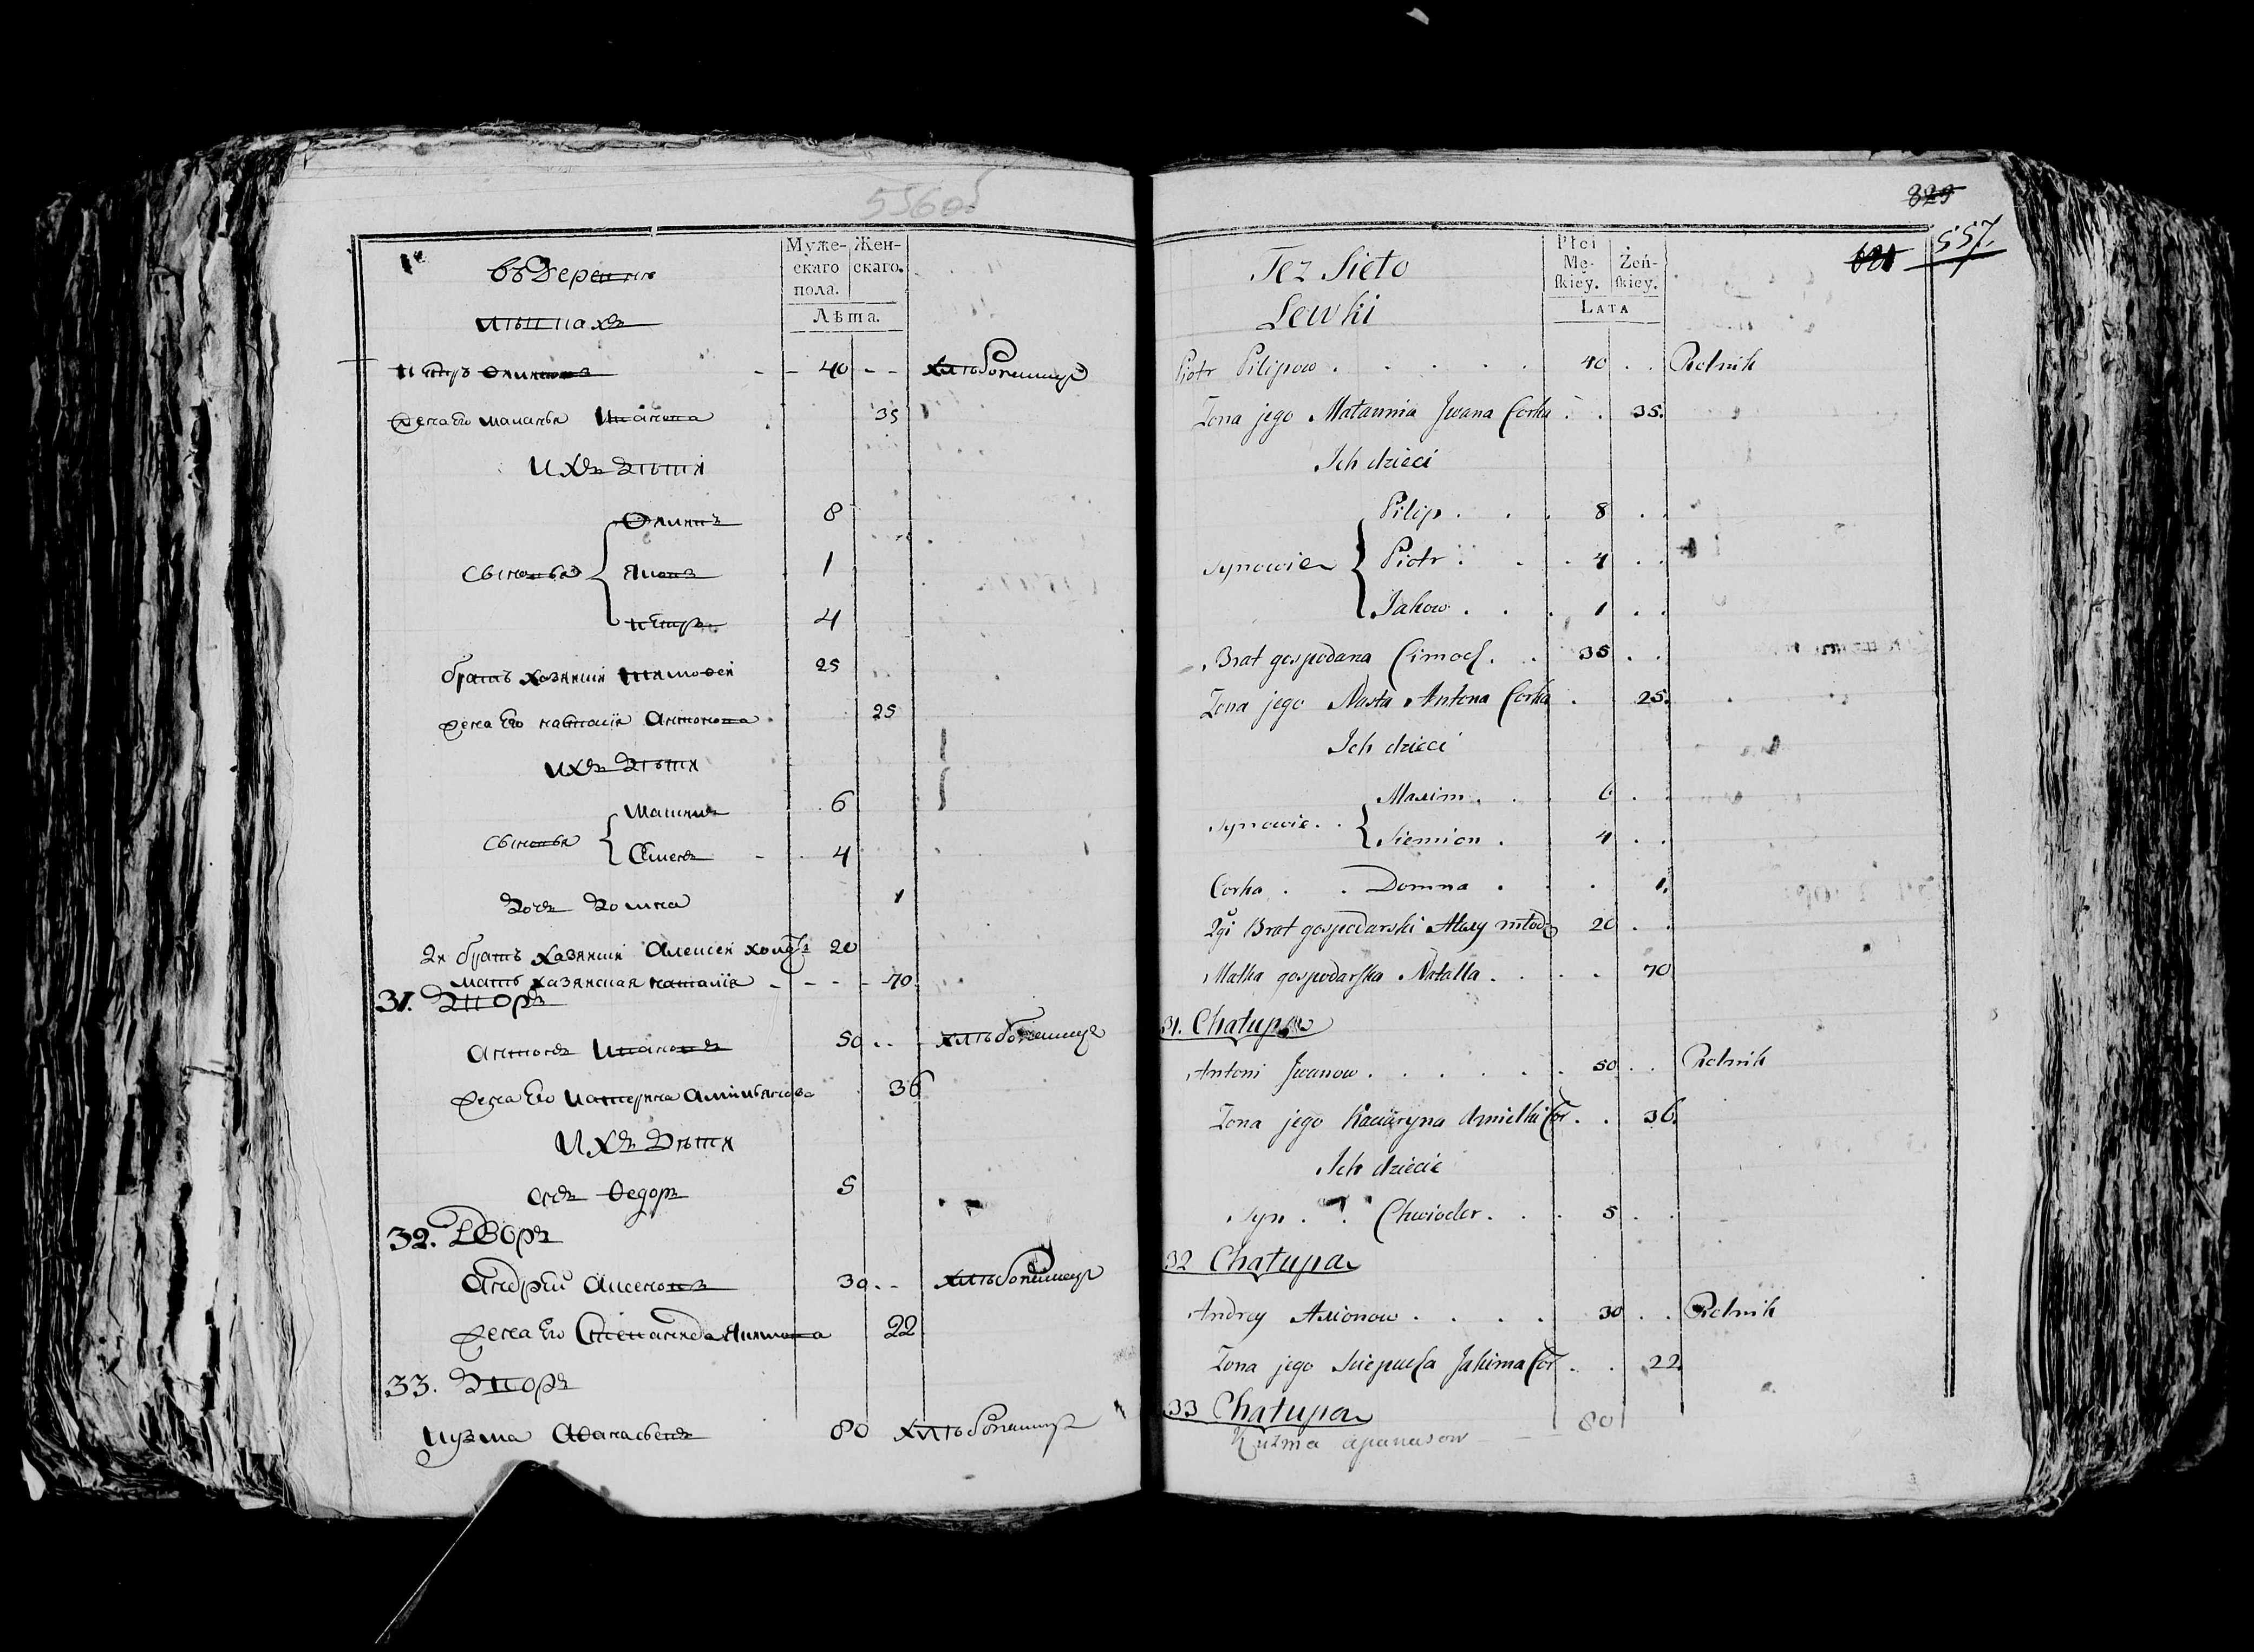 556об
Муже-
скаго
пола.
Жен-
скаго.
Лѣта.
въ деревнѣ
Левкахъ
Петръ Филиповъ 40 хлѣбопашецъ
Жена Его Маланья Иванова 35
ихъ дѣти
Сыновья
Филипъ 8
Яковъ 1
Петръ 4
братъ хазяина Тимофей 25
жена Его Настасія Антонова 25
ихъ дѣти
Сыновья
Максимъ 6
Семенъ 4
Дочь Домна 1
2й братъ хазяина Алексей 20
мать хазяиская Наталія 70
31. Дворъ
Антонъ Ивановъ 50 хлѣбопашецъ
жена Его Катерина 36
ихъ дѣти
сынъ Федоръ 5
32. Дворъ
Андрей Аксеновъ 30 хлѣбопашецъ
жена Его Степанида Якимова 22
33. Дворъ
Кузма Афанасьевъ 80 хлѣбопашецъ
829
681 557.
Płci
Mę-
skiey.
Żeń-
skiey.
Lata
Tez Sieło
Lewki
Piotr Pilipow 40 Rolnik
Zona jego Małannia Jwana Corka 35.
Ich dzieci
Synowie
Pilip 8
Piotr 4
Jakow 1
Brat gospodara Cimoch 35
Zona jego Nasta Antona Corka 25.
Ich dzieci
Synowie
Maxim 6
Siemion 4
Corka Domna 1.
2gi Brat gospodarski Alexy młody 20
Matka gospodarska Natalla 70
31. Chałupa
Antoni Jwanow 50 Rolnik
Zona jego Kaciaryna Cor. 36.
Ich dziecie
Syn Chwiodor 5
32 Chałupa
Andrey Axionow 30 Rolnik
Zona jego Jakima Cor. 22
33 Chałupa
Kuzma Apanasow 80